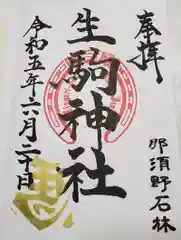 奉拝
生駒神社
令和五年六月二十日
那須野石林